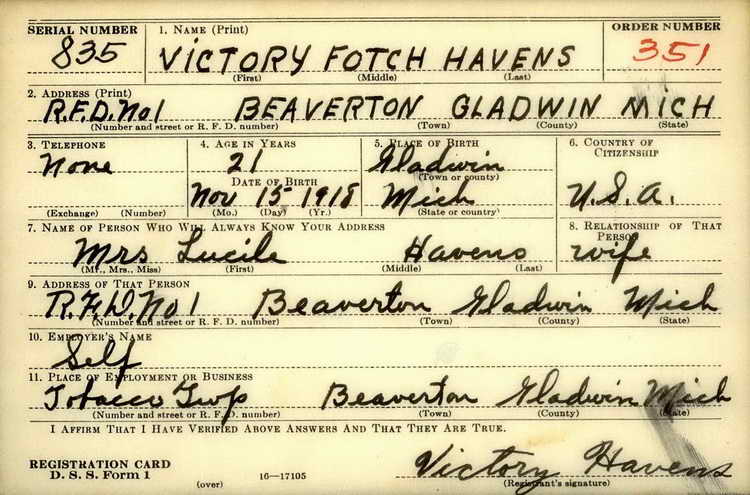 SERIAL NUMBER 1. NAME (Print) ORDER NUMBER
835 VICTORY FOTCH HAVENS 351
(First) (Middle) (Last)
2. ADDRESS (Print)
R.F.D. No 1 BEAVERTON GLADWIN MICH
(Number and street or R. F. D. number) (Town) (County) (State)
3. TELEPHONE 4. AGE IN YEARS 5. PLACE OF BIRTH 6. COUNTRY OF
CITIZENSHIP
None 21 Gladwin
(Town or county)
DATE OF BIRTH
Nov 15-1918 Mich U.S.A.
(Exchange) (Number) (Mo.) (Day) (Yr.) (State or country)
7. NAME OF PERSON WHO WILL ALWAYS KNOW YOUR ADDRESS 8. RELATIONSHIP OF THAT
PERSON
Mrs Lucile Havens wife
(Mr., Mrs., Miss) (First) (Middle) (Last)
9. ADDRESS OF THAT PERSON
R.F.D. No 1 Beaverton Gladwin Mich
(Number and street or R. F. D. number) (Town) (County) (State)
10. EMPLOYER'S NAME
Self
11. PLACE OF EMPLOYMENT OR BUSINESS
Tobacco Twp Beaverton Gladwin Mich
(Number and street or R. F. D. number) (Town) (County) (State)
I AFFIRM THAT I HAVE VERIFIED ABOVE ANSWERS AND THAT THEY ARE TRUE.
Victory Havens
REGISTRATION CARD
D. S. S. Form 1 (over) 16—17105 (Registrant's signature)